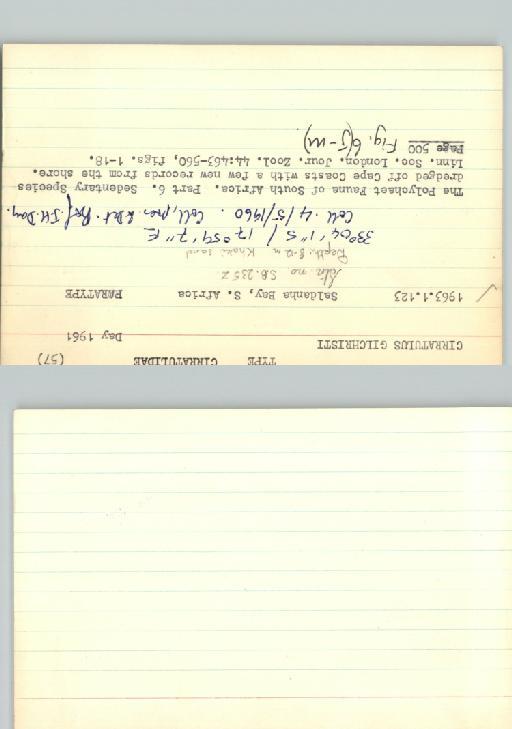 TYPE CIRRATULIDAE (57)
CIRRATULUS GILCHRISTI Day 1961
1963.1.123 Saldanha Bay, S. Africa PARATYPE
Stn no S.B. 235Z
Depth: 8-12 m Khaki sand
33°04'1"S / 17°54'7"E
Coll. 4/5/1960. Coll, pres. & Det. Prof J.H. Day.
The Polychaet Fauna of South Africa. Part 6. Sedentary Species
dredged off Cape Coasts with a few new records from the shore.
Linn. Soc. London, Jour. Zool. 44:463-560, figs. 1-18.
Page 500 Fig. 6(j-m)